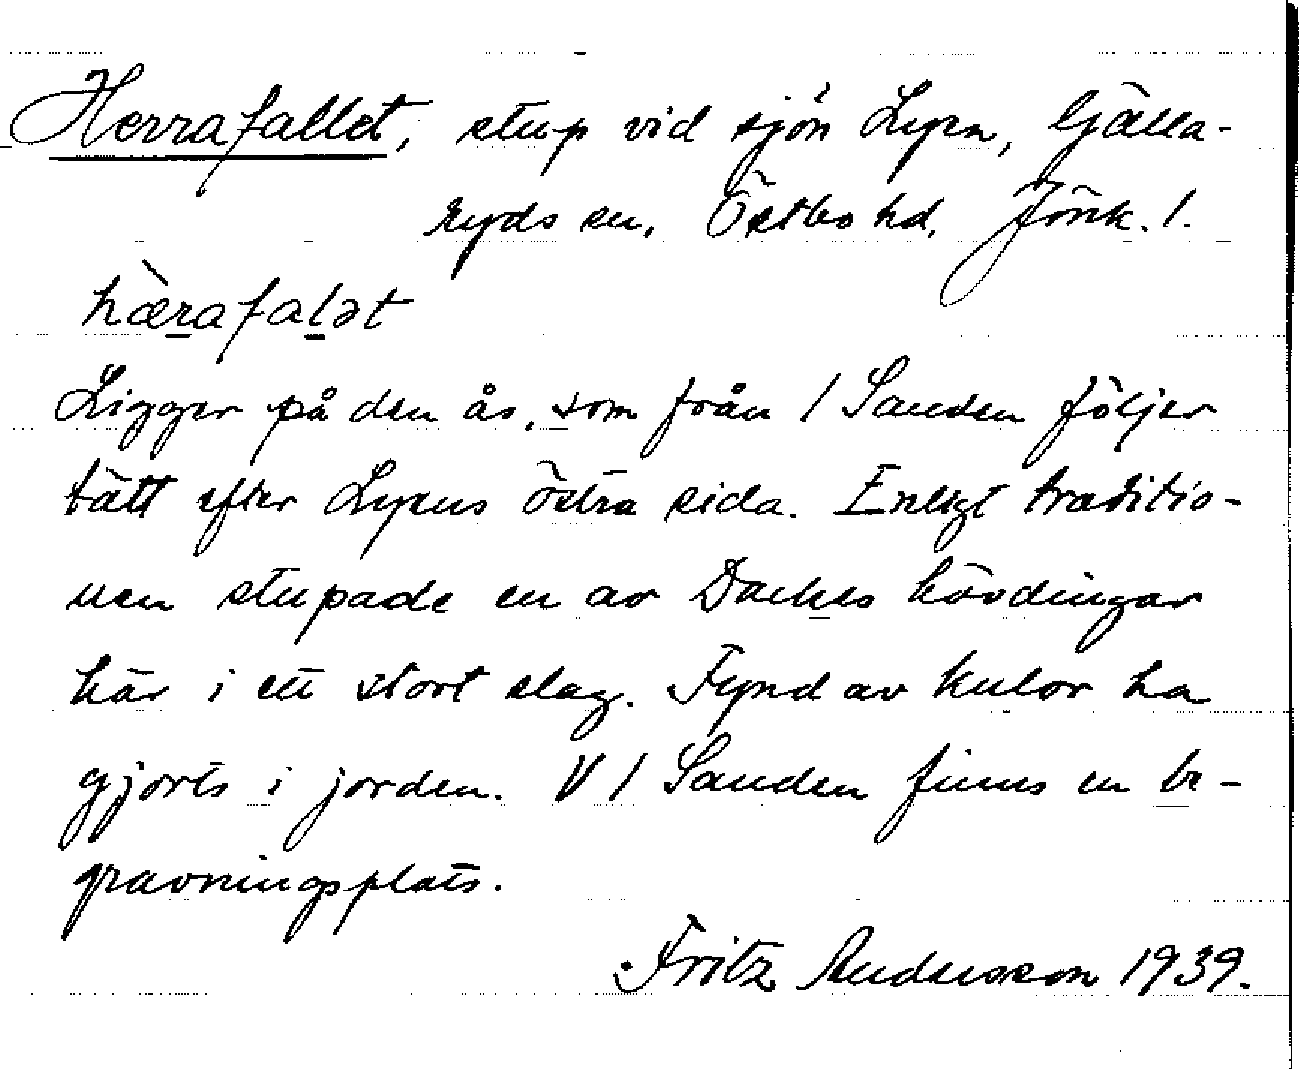 Herrafallet, stup vid sjön Lyen, Gälla-
ryds sn, Östbo hd, Jönk. l.
hæ̀rafalət
Ligger på den ås, som från / Sanden följer
tätt efter Lyens östra sida. Enligt traditio-
nen stupade en av Dackes hövdingar
här i ett stort slag. Fynd av kulor ha
gjorts i jorden. V / Sanden finns en be-
gravningsplats.
Fritz Andersson 1939.